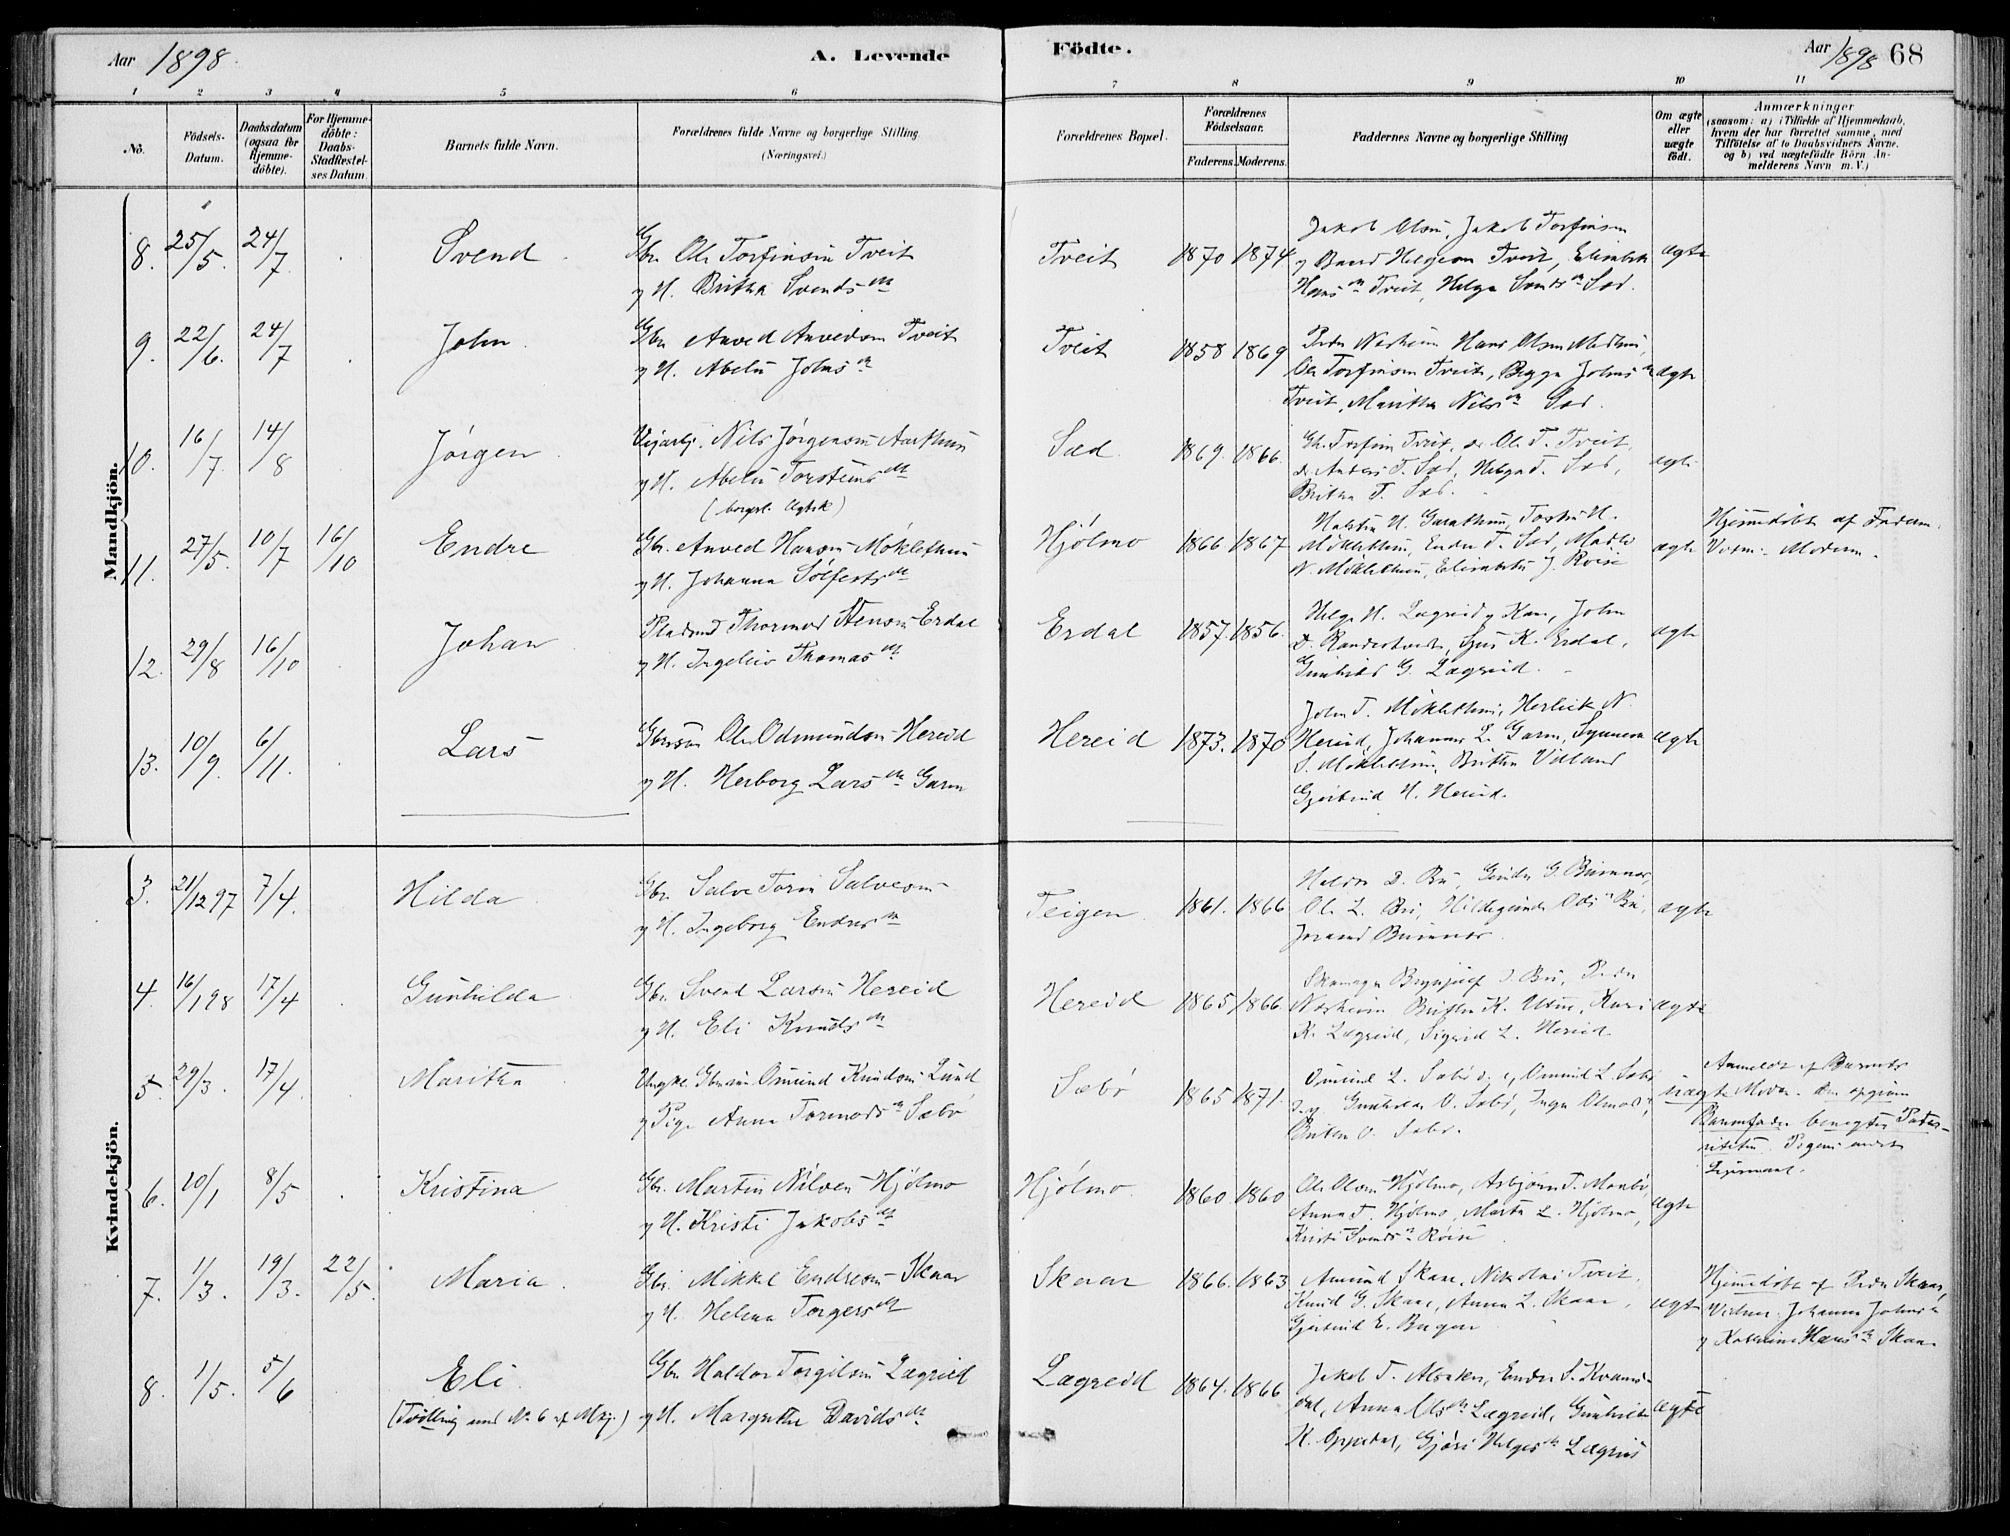 Aar 1898.
A. Levende
Födte.
Aar 1898 68
1 2 3 4 5 6 7 8 9 10 11
Nö.
Födsels-Datum.
Daabsdatum (ogsaa for Hjemmedöbte).
For Hjemmedöbte: Daabs-Stadfæstelses Datum
Barnets fulde Navn.
Forældrenes fulde Navne og borgerlige Stilling (Næringsvei.)
Forældrenes Bopæl.
Forældrenes Födselsaar.
Faderens. Moderens.
Faddernes Navne og borgerlige Stilling
Om ægte eller uægte födt.
Anmærkninger
(saasom: a) i Tilfælde af Hjemmedaab,
hvem der har forrettet samme, med
Tilföielse af to Daabsvidners Navne.
og b) ved uægtefödte Börn An-
melderens Navn m.V.)
Mandkjön.
8. 25/5. 24/7 Svend Gbr. Ole Torfinsen Tveit
og H. Britha Svendsdtr
Tveit 1870 1874 Jakob Olsen, Jakob Torfinsen
og Baard Helgesen Tveit, Elisabeth
Hansdr Tveit, Helga Svendsdr Sæd. ægte
9. 22/6. 24/7 John Gbr. Anved Anvedsen Tveit
og H. Abelu Johnsdr
Tveit 1858 1869 Peder Næsheim Hans Olsen
Ole Torfinsen Tveit, Johnsdr
Tveit, Maritha Nilsdr Sæd. ægte
10. 16/7. 14/8 Jörgen Nils Jörgensen Aarthun
og H. Abelu Torsteinsdtr
(borgerl. Ægtesk)
Sæd. 1869. 1866. Torfin Tveit, Ole T. Tveit,
Anders T. Sæd, Helga T. Sæd,
Britha T. Sæd. ægte
11. 27/5. 10/7 16/10 Endre Gbr. Anved Hansen Möklethun
og H. Johanna Sölfestsdtr
Hjölmo 1866 1867 H. Garathun, Torstein H.
Möklethun, Endre T. Sæd,
N. Möklethun, Elisabeth J. Röise ægte
Hjemmedöbt af Faderen.
12. 29/8 16/10 Johan Pladsmd Thormod Stensen Erdal
og H. Ingeleiv Thomasdtr
Erdal 1857. 1856. Helge H. Lægreid og Kone, John
K. Erdal,
Gunhild G. Lægreid. ægte
13. 10/9. 6/11. Lars Gbrsøn Ole Odmundsen Hereid
og H. Herborg Larsdtr Garen
Hereid 1873. 1870 John T. Möklethun, Herleik N.
Hereid, Johannes L. Garen, Synneva
S. Möklethun, Britha Villand
Gjertrud H. Hereid. ægte
Kvindekjön.
3. 21/12 97 7/4. Hilda Gbr. Salve Salvesen
og H. Ingeborg Endresdr
Teigen. 1861. 1866 D. Bu, G. Bunæs,
Ole L. Bu, Bu,
Bunæs. ægte
4. 16/1 98 17/4 Gunhilda Gbr. Svend Larsen Hereid
og H. Eli Knudsdtr
Hereid 1865 1866. Brynjulf Bu, Peder
Næsheim Britha K. Utne, Kari
K. Lægreid, Sigrid L. Hereid. ægte
5. 29/3. 17/4. Maritha Ungkl. Gbrsøn Omund Knudsen Lund
og Pige Anna Tormodsdr Sæbö
Sæbö 1865 1871. Omund L. Sæbö, Omund L. Sæbö
Gunhilda O. Sæbö, Inga Olmod,
Britha O. Sæbö. uægte
Anmeldt af Barnets
Moder. Den opgivne
Barnefader benegter Pater-
niteten. Pigens andet
Leiermaal.
6. 10/1 8/5 Kristina Gbr. Martin Nilsen Hjölmo
og H. Kristi Jakobsdtr
Hjölmo. 1860. 1860 Ole Olsen Hjölmo, Asbjörn T.
Anna T. Hjölmo, Marta L. Hjölmo,
Kristi Svendsdr Röise ægte
7. 1/3. 19/3. 22/5. Maria Gbr. Mikkel Endresen Skaar
og H. Helena Torgersdtr
Skaar 1866. 1863 Amund Skaar, Nikolai Tveit,
Knud G. Skaar, Anna L. Skaar,
Gjertrud E. ægte
Hjemmedöbt af Peder Skaar,
Vidner. Johanna Johnsdr
og Katharina Hansdr Skaar
8. 1/5. 5/6 Eli.
(Tvilling med No 6 af Mkj.)
Gbr. Haldor Torgilsen Lægreid
og H. Margretha Davidsdtr
Lægreid 1864. 1866 Jakob T. Alsaker, Endre S. Kvams-
dal, Anna Olsdr Lægreid, Gunhild
K. Oppedal, Gjöri Helgesdr Lægreid ægte